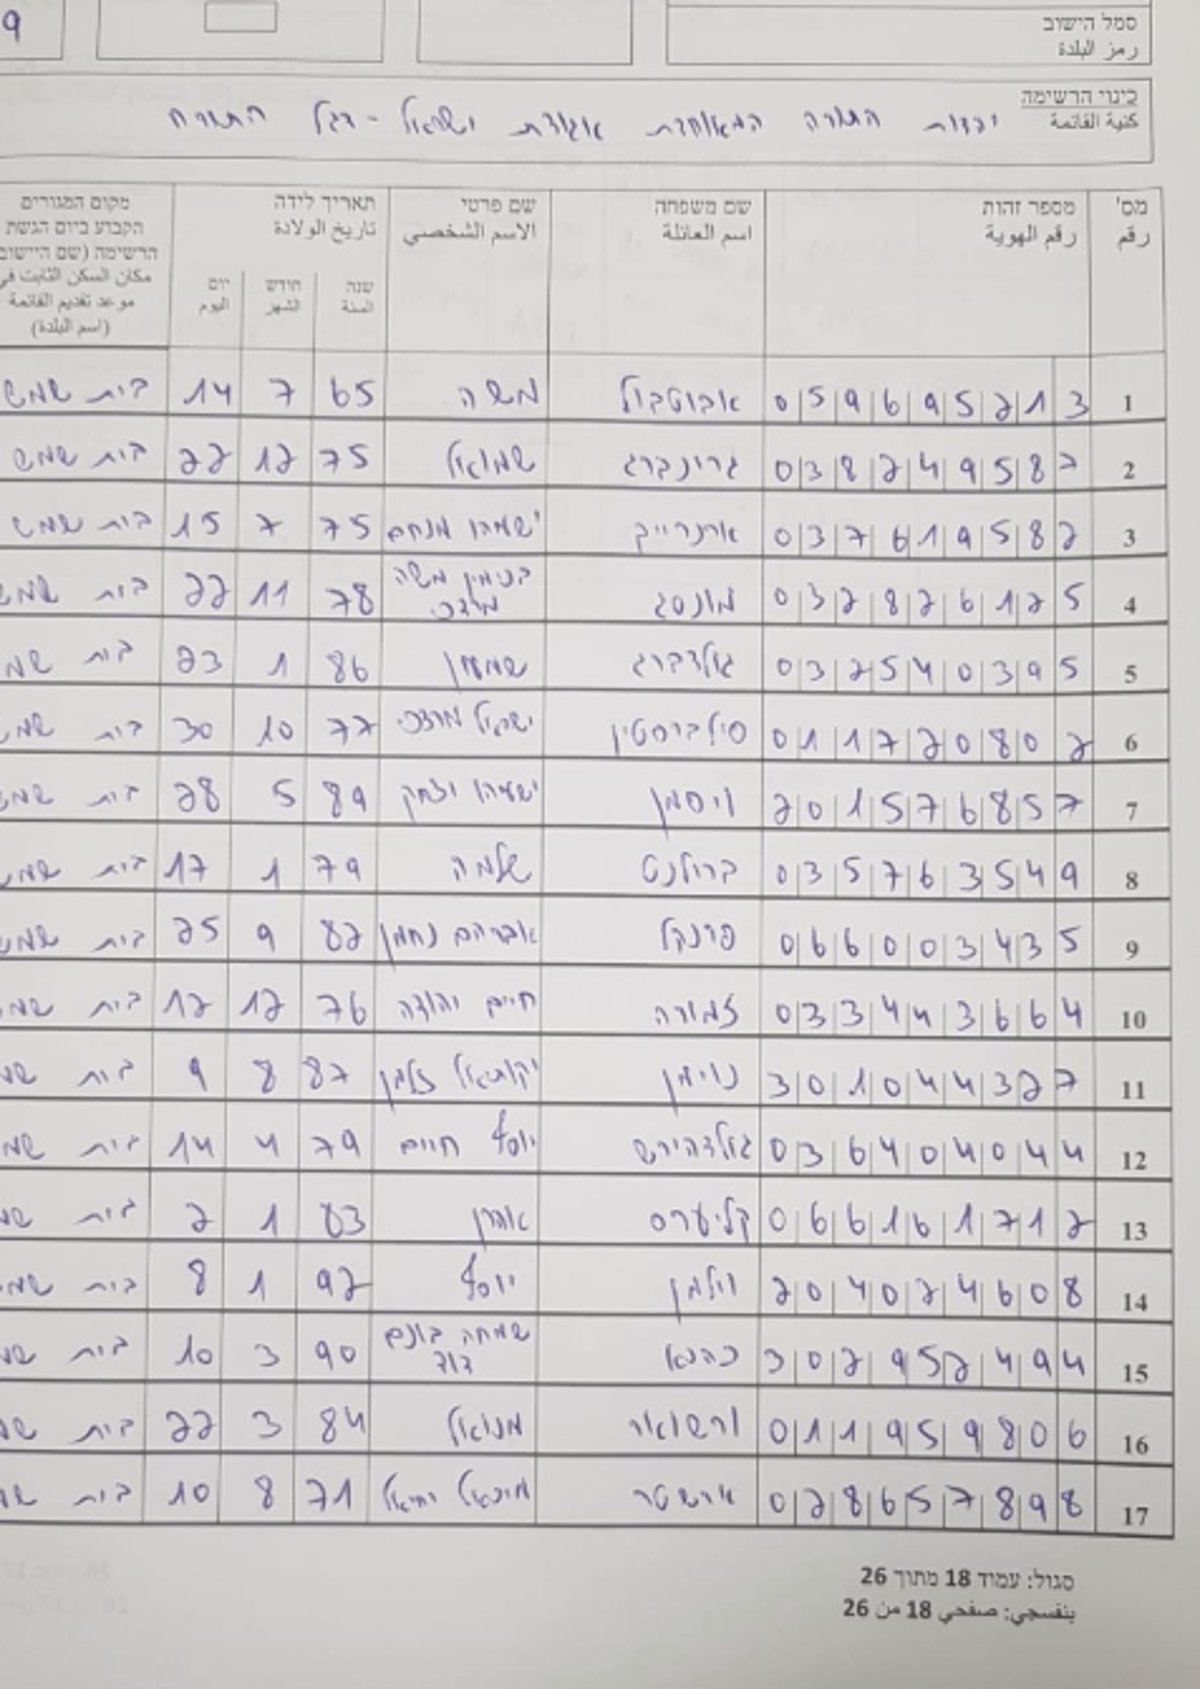 9
סמל הישוב
رمز البلدة
כינוי הרשימה
كنية القائمة
יהדות התורה המאוחדת אגודת ישראל - דגל התורה
מס' מספר זהות שם משפחה שם פרטי תאריך לידה מקום המגורים
رقم رقم الهوية اسم العائلة الاسم الشخصي تاريخ الولادة הקבוע ביום הגשת
הרשימה (שם היישוב
שנה חודש יום مكان السكن الثابت في
السنة الشهر اليوم موعد تقديم القائمة
(اسم البلدة)
1 059695213 אבוטבול משה 65 7 14 בית שמש
2 038249587 גרינברג שמואל 75 12 22 בית שמש
3 037619582 ארנרייך ישעיהו מנחם 75 7 15 בית שמש
4 032826125 מונסג בנימין משה מרדכי 78 11 22 בית שמש
5 032540395 גולדברג שמעון 86 1 23 בית שמ
6 011720802 סילברסטין ישראל מרדכי 77 10 30 בית שמ
7 201576857 ויסמן ישעיהו יצחק 89 5 28 בית שמש
8 035763549 ברילנט שלמה 79 1 17 בית שמש
9 066003435 פרנקל אברהם נחמן 82 9 25 בית שמש
10 033443664 זמורה חיים יהודה 76 12 12 בית שמש
11 301044327 נוימן יקותיאל זלמן 87 8 9 בית שמ
12 036404044 גולדהירש יוסף חיים 79 4 14 בית שמ
13 066161712 קליערס אהרן 83 1 2 בית שמ
14 204024608 וילמן יוסף 92 1 8 בית שמ
15 302952494 כהנא שמחה בונם דוד 90 3 10 בית שמ
16 011959806 ורשואר מנואל 84 3 22 בית שמ
17 028657898 ארשטר מיכאל יחיאל 71 8 10 בית שמ
סגול: עמוד 18 מתוך 26
بنفسجي: صفحي 18 من 26